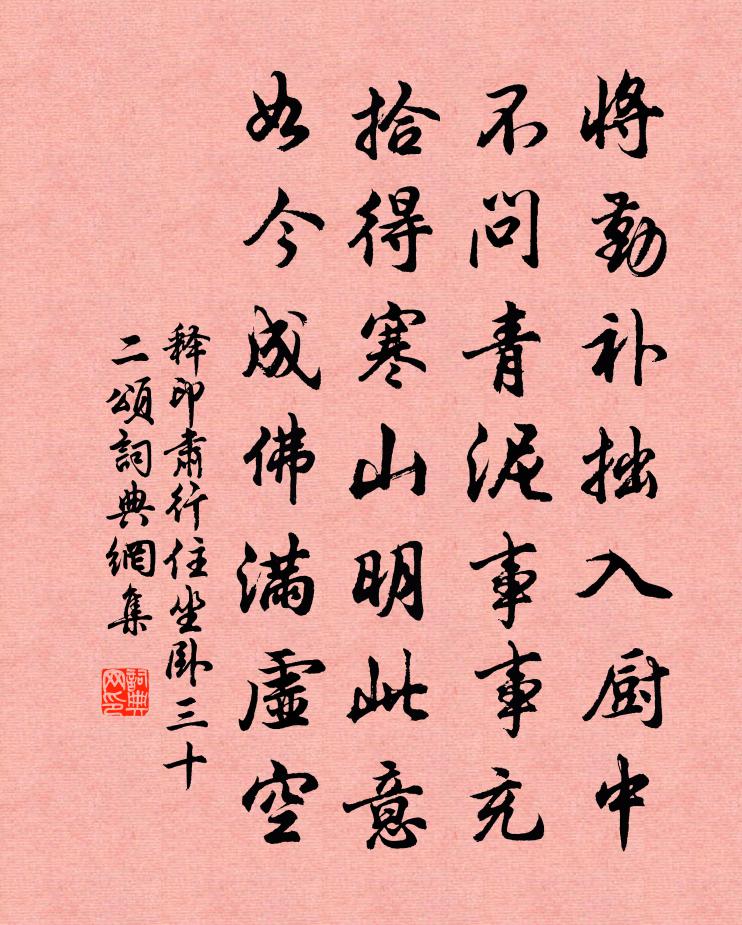 将勤补拙入厨中
不问青泥事事充
拾得寒山明此意
如今成佛满虚空
释印肃行住坐卧三十
二頌詞典網集
詞典网印